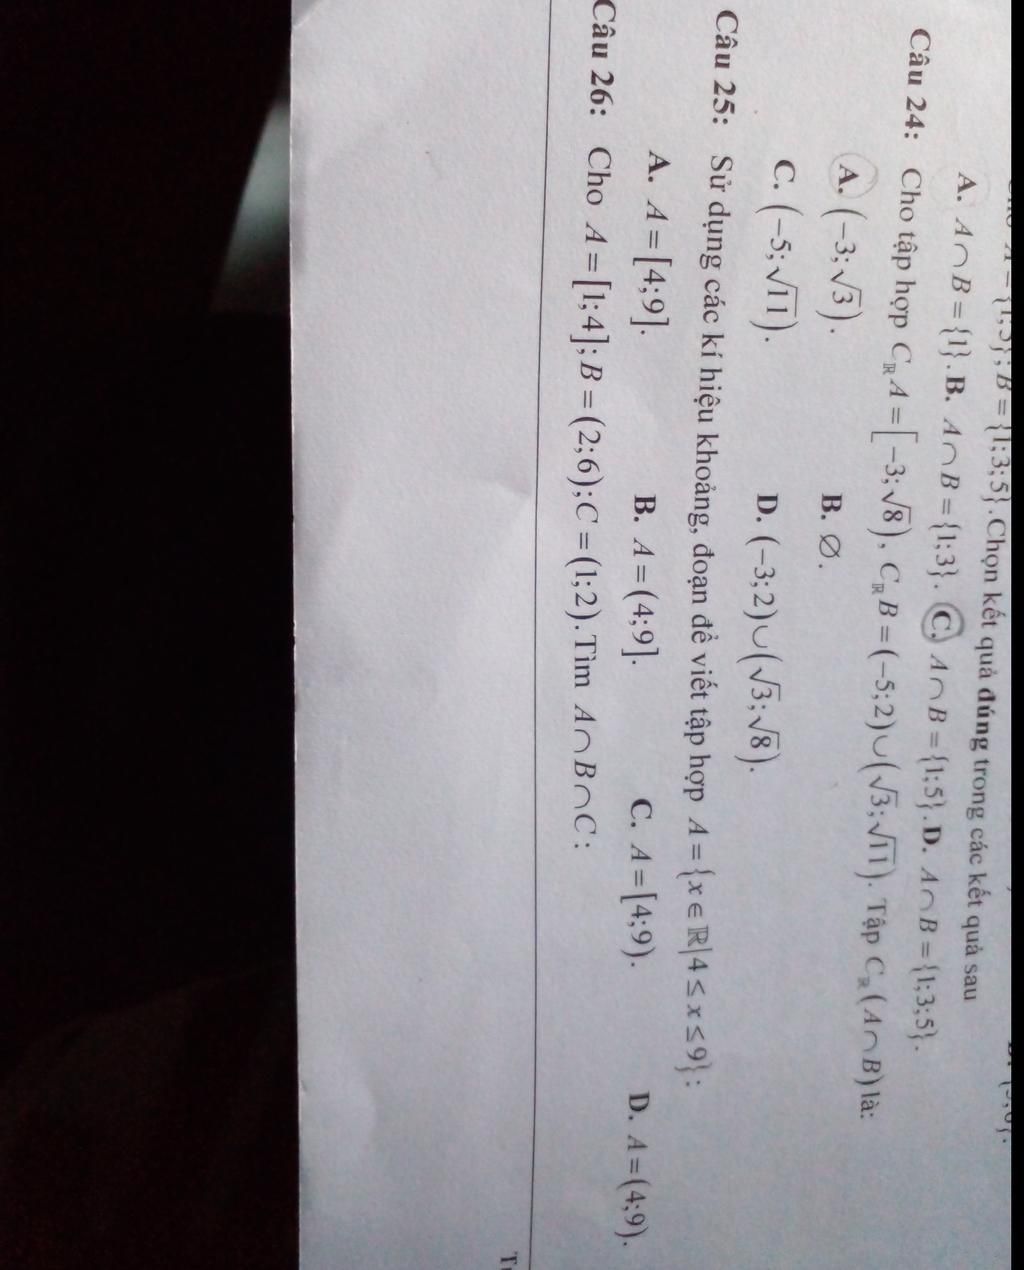 A = {1;5}; B = {1;3;5}. Chọn kết quả đúng trong các kết quả sau
A. A∩B = {1}. B. A∩B = {1;3}. C. A∩B = {1;5}. D. A∩B = {1;3;5}.
Câu 24: Cho tập hợp C_ℝ A = [−3;√8), C_ℝ B = (−5;2)∪(√3;√11). Tập C_ℝ (A∩B) là:
A. (−3;√3). B. ∅.
C. (−5;√11). D. (−3;2)∪(√3;√8).
Câu 25: Sử dụng các kí hiệu khoảng, đoạn để viết tập hợp A = {x ∈ ℝ | 4 ≤ x ≤ 9}:
A. A = [4;9]. B. A = (4;9]. C. A = [4;9). D. A = (4;9).
Câu 26: Cho A = [1;4]; B = (2;6); C = (1;2). Tìm A∩B∩C: